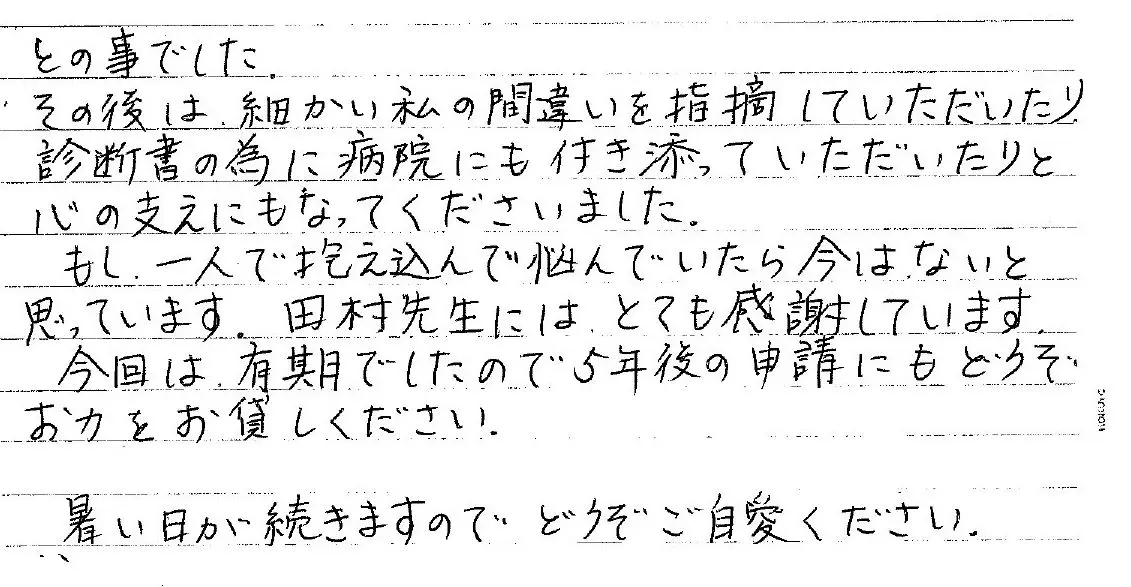 との事でした。
その後は、細かい私の間違いを指摘していただいたり、
診断書の為に病院にも付き添っていただいたりと
心の支えにもなってくださいました。
もし、一人で抱え込んで悩んでいたら今は、ないと
思っています。田村先生には、とても感謝しています。
今回は、有期でしたので5年後の申請にもどうぞ
お力をお貸しください。
暑い日が続きますので どうぞご自愛ください。